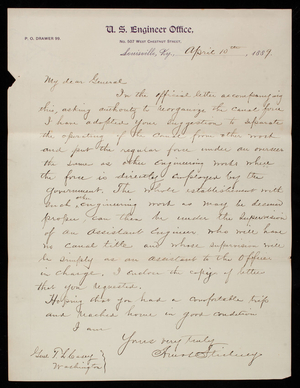 U. S. Engineer Office,
P. O. DRAWER 99.
No. 527 West Chestnut Street,
Louisville, Ky., April 10th, 1889.
My dear General
In the official letter accompanying
this, asking authority to reorganize the canal force
I have adopted your suggestion to separate
the operating of the Canal from other work
and put the regular force under an overseer
the same as other Engineering works where
the force is directly employed by the
Government. The whole establishment with
such other engineering work as may be deemed
proper can then be under the supervision
of an Assistant Engineer who will have
no canal title and whose supervision will
be simply as an assistant to the Officer
in charge. I enclose the copy of letter
that you requested.
Hoping that you had a comfortable trip
and reached home in good condition
I am
Yours very truly
Amos Stickney
Genl. T. L. Casey
Washington